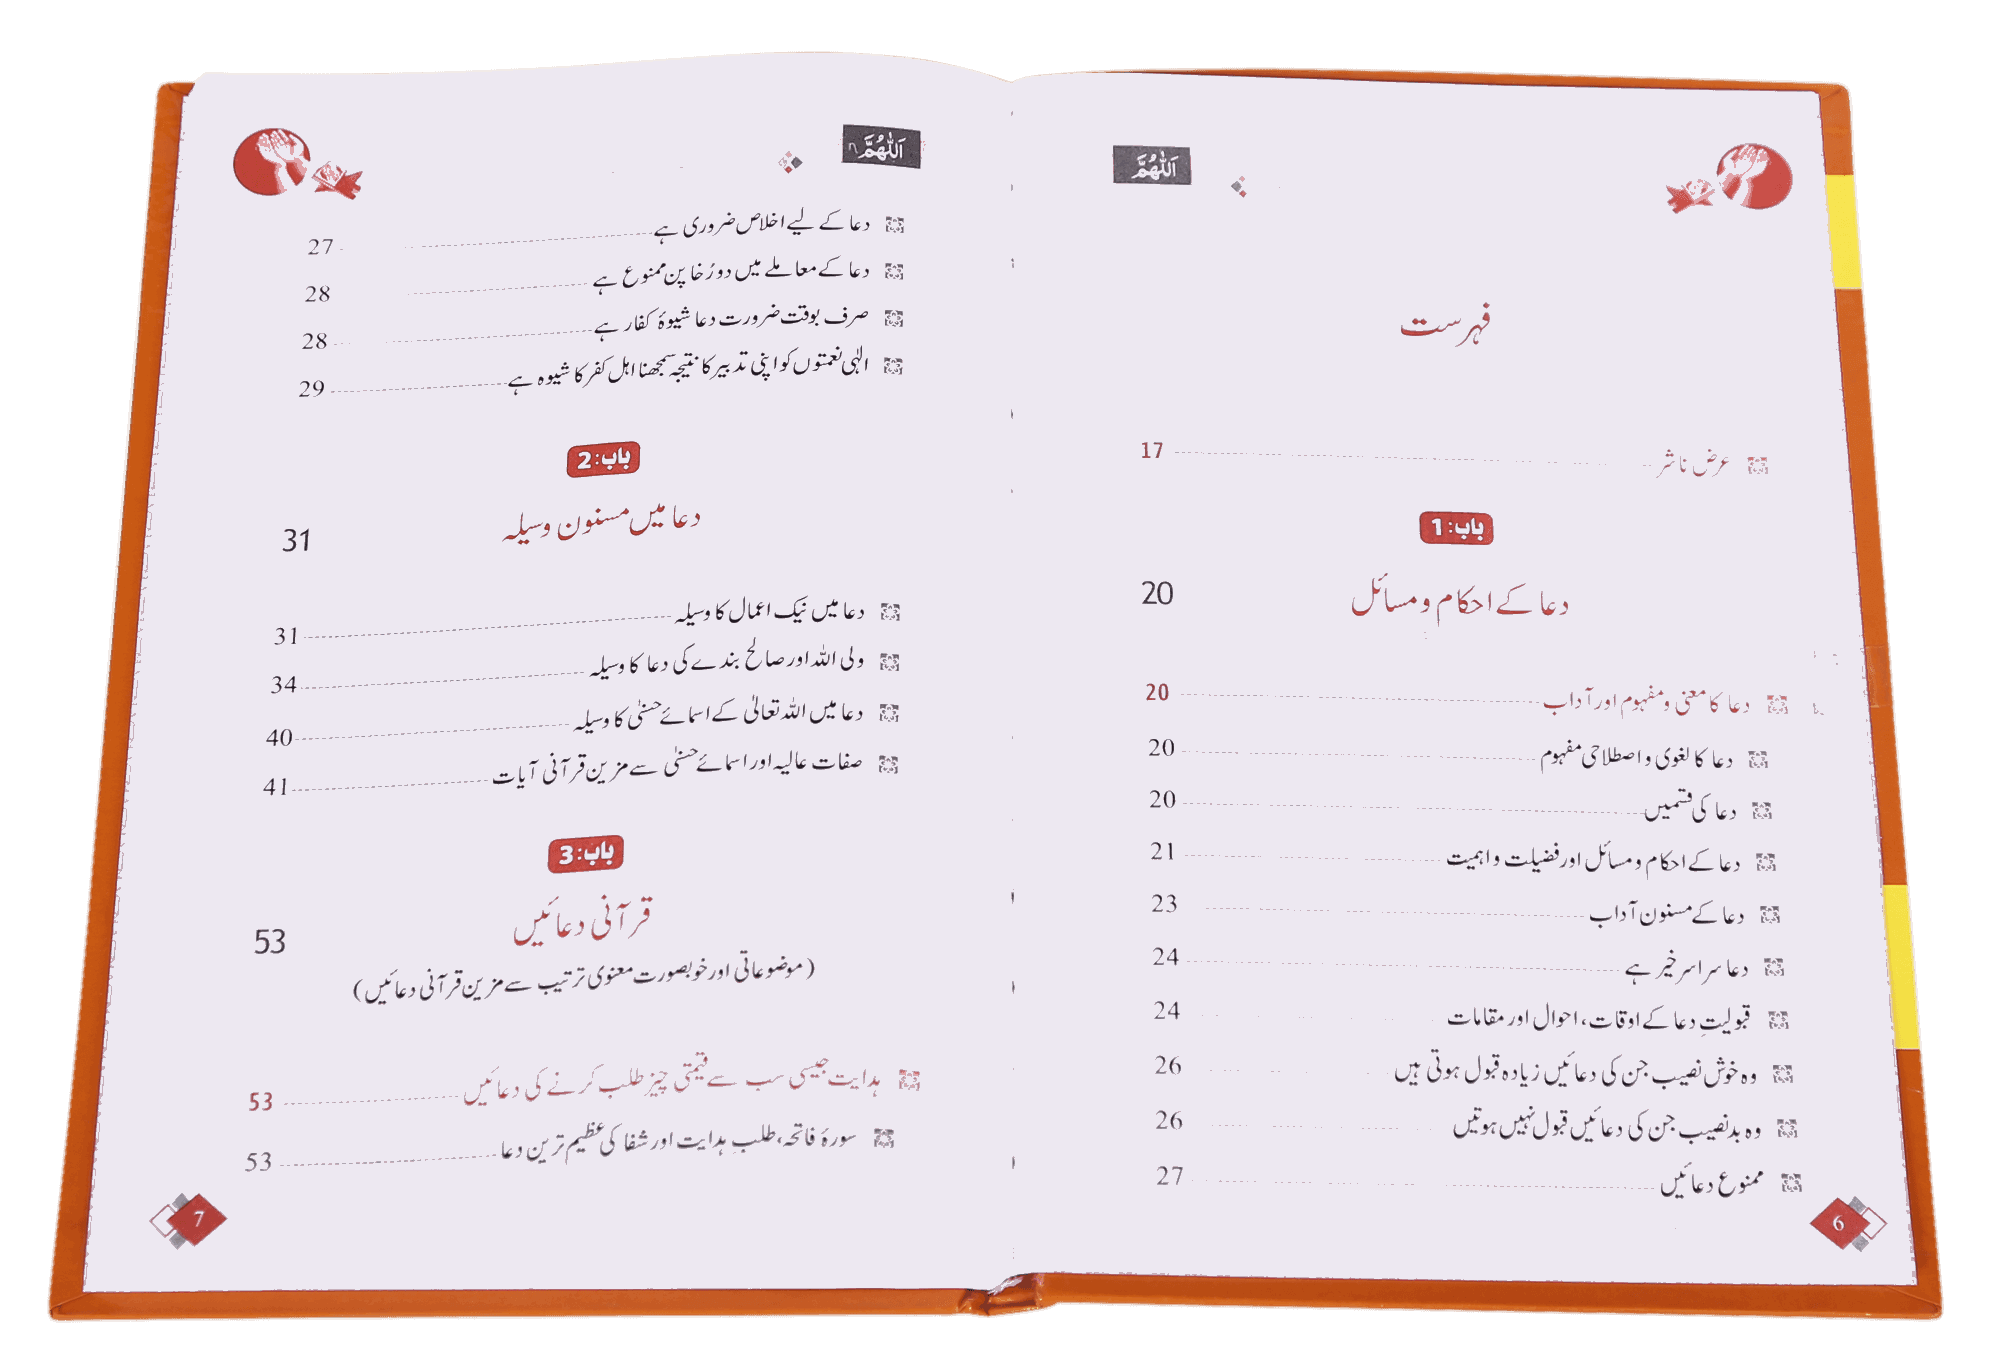 اَللّٰهُمَّ
فہرست
عرض ناشر 17
باب: 1
دعا کے احکام و مسائل 20
دعا کا معنی و مفہوم اور آداب 20
دعا کا لغوی و اصطلاحی مفہوم 20
دعا کی قسمیں 20
دعا کے احکام و مسائل اور فضیلت و اہمیت 21
دعا کے مسنون آداب 23
دعا سراسر خیر ہے 24
قبولیتِ دعا کے اوقات، احوال اور مقامات 24
وہ خوش نصیب جن کی دعائیں زیادہ قبول ہوتی ہیں 26
وہ بدنصیب جن کی دعائیں قبول نہیں ہوتیں 26
ممنوع دعائیں 27
6
اَللّٰهُمَّ
دعا کے لیے اخلاص ضروری ہے 27
دعا کے معاملے میں دو رُخا پن ممنوع ہے 28
صرف بوقت ضرورت دعا شیوۂ کفار ہے 28
الٰہی نعمتوں کو اپنی تدبیر کا نتیجہ سمجھنا اہل کفر کا شیوہ ہے 29
باب: 2
دعا میں مسنون وسیلہ 31
دعا میں نیک اعمال کا وسیلہ 31
ولی اللہ اور صالح بندے کی دعا کا وسیلہ 34
دعا میں اللہ تعالیٰ کے اسمائے حسنٰی کا وسیلہ 40
صفات عالیہ اور اسمائے حسنٰی سے مزین قرآنی آیات 41
باب: 3
قرآنی دعائیں 53
(موضوعاتی اور خوبصورت معنوی ترتیب سے مزین قرآنی دعائیں)
ہدایت جیسی سب سے قیمتی چیز طلب کرنے کی دعائیں 53
سورۂ فاتحہ، طلبِ ہدایت اور شفا کی عظیم ترین دعا 53
7